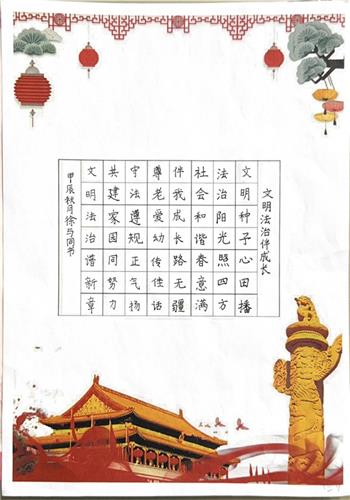 文明法治伴成长
文明种子心田播
法治阳光照四方
社会和谐春意满
伴我成长路无疆
尊老爱幼传佳话
守法遵规正气扬
共建家国同努力
文明法治谱新章
甲辰秋月徐